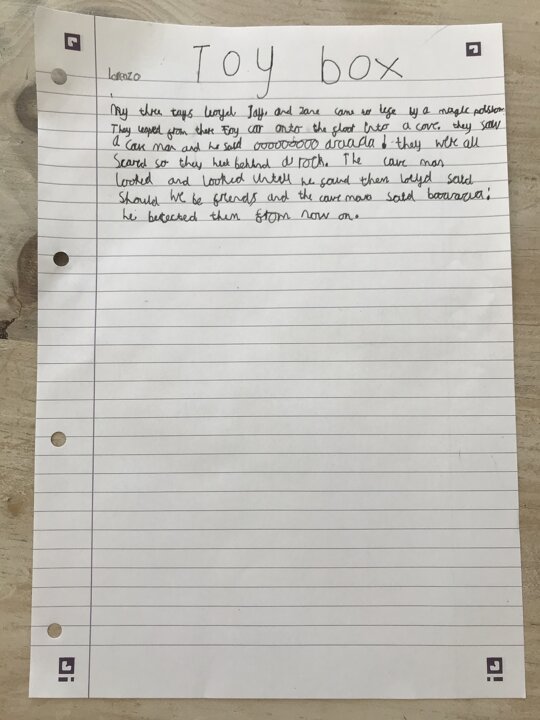 Toy box
Lorenzo
My three toys lloyd Jay, and zane came to life by a magic potshon
They leaped from there Toy car onto the floor Into a cave. they saw
a Cave man and he said ooooooooo
they were all
Scared so they hed behind a rock. The cave man
looked and looked Untell he found them lolyd said
Should we be friends and the cave man said
he petected them from now on.